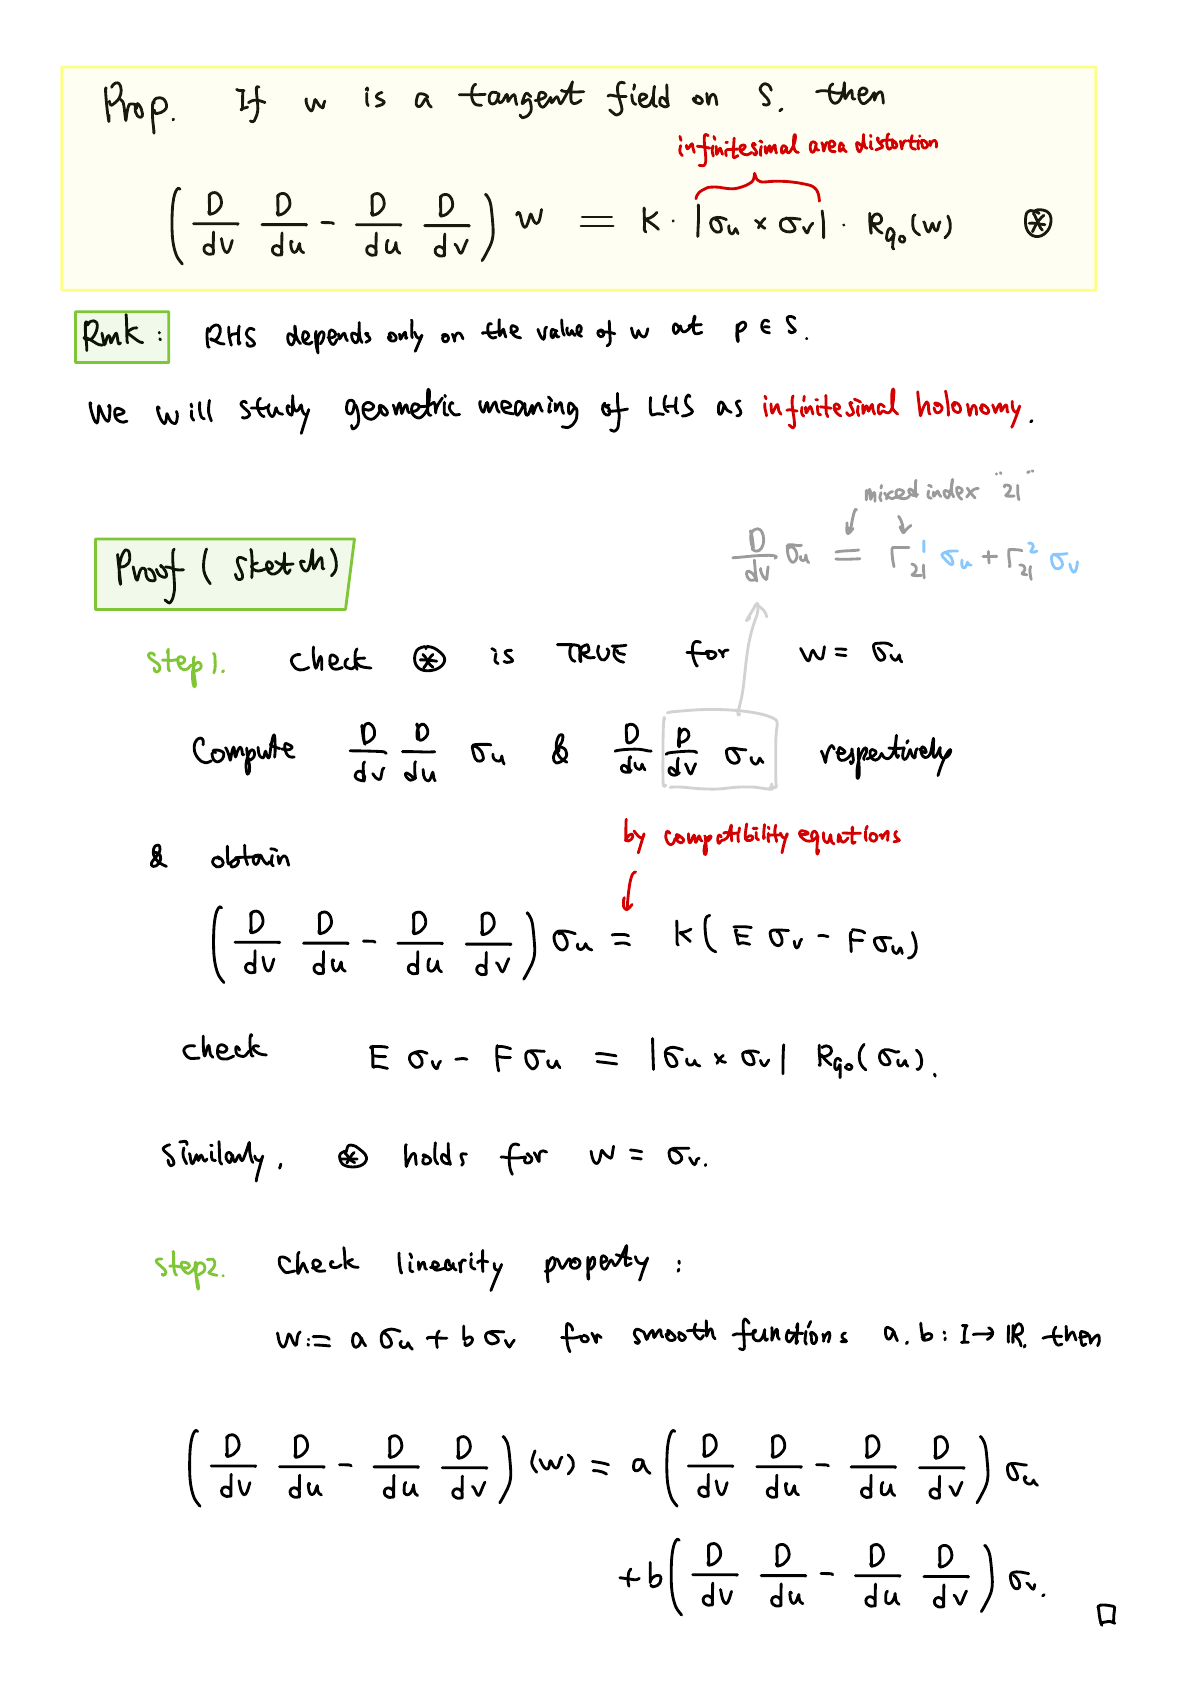 Prop. If w is a tangent field on S. then
infinitesimal area distortion
(D/dv D/du - D/du D/dv) w = K · |σu × σv| · R90(w) ⊛
Rmk: RHS depends only on the value of w at p ∈ S.
We will study geometric meaning of LHS as infinitesimal holonomy.
mixed index "21"
D/dv σu = Γ¹₂₁ σu + Γ²₂₁ σv
Proof (sketch)
Step1. Check ⊛ is TRUE for w = σu
Compute D/dv D/du σu & D/du D/dv σu respectively
by compatibility equations
& obtain
(D/dv D/du - D/du D/dv) σu = K(E σv - F σu)
check E σv - F σu = |σu × σv| R90(σu).
Similarly, ⊛ holds for w = σv.
step2. Check linearity property :
w := a σu + b σv for smooth functions a, b : I → ℝ, then
(D/dv D/du - D/du D/dv) (w) = a (D/dv D/du - D/du D/dv) σu
+ b (D/dv D/du - D/du D/dv) σv. □